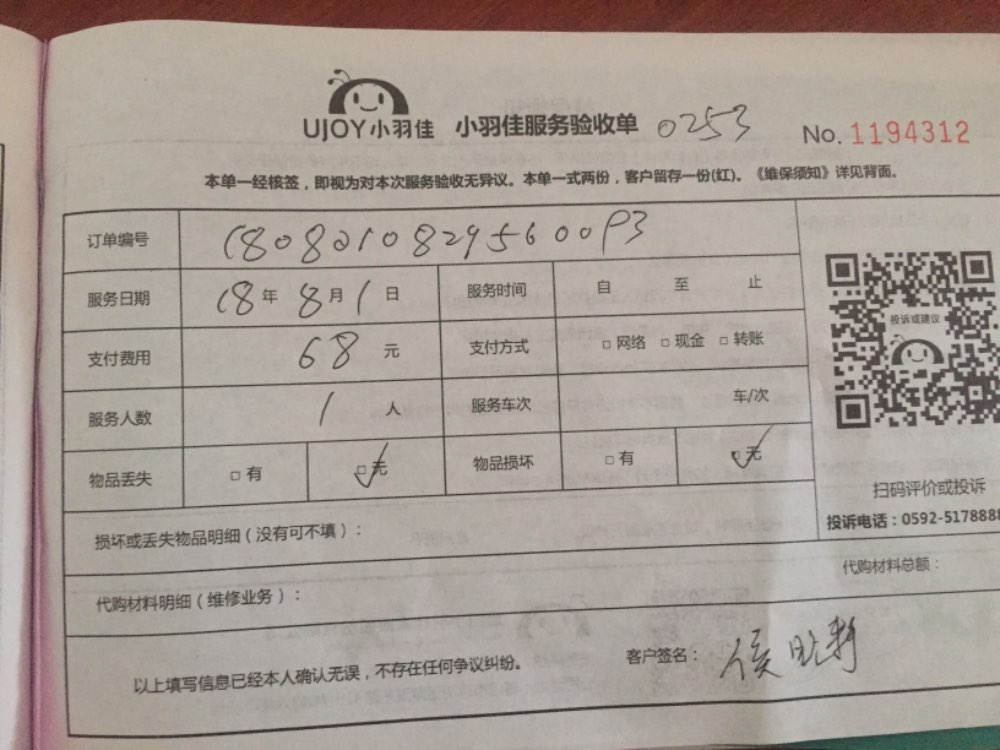 UJOY小羽佳 小羽佳服务验收单 0253 No. 1194312
本单一经核签，即视为对本次服务验收无异议。本单一式两份，客户留存一份(红)。《维保须知》详见背面。
订单编号 18080108295600P3
服务日期 18年 8月 1日 服务时间 自 至 止
支付费用 68 元 支付方式 □网络 □现金 □转账
服务人数 1 人 服务车次 车/次
物品丢失 □有 ☑无 物品损坏 □有 ☑无
投诉或建议
扫码评价或投诉
投诉电话：0592-5178888
损坏或丢失物品明细（没有可不填）：
代购材料明细（维修业务）： 代购材料总额：
以上填写信息已经本人确认无误，不存在任何争议纠纷。 客户签名：